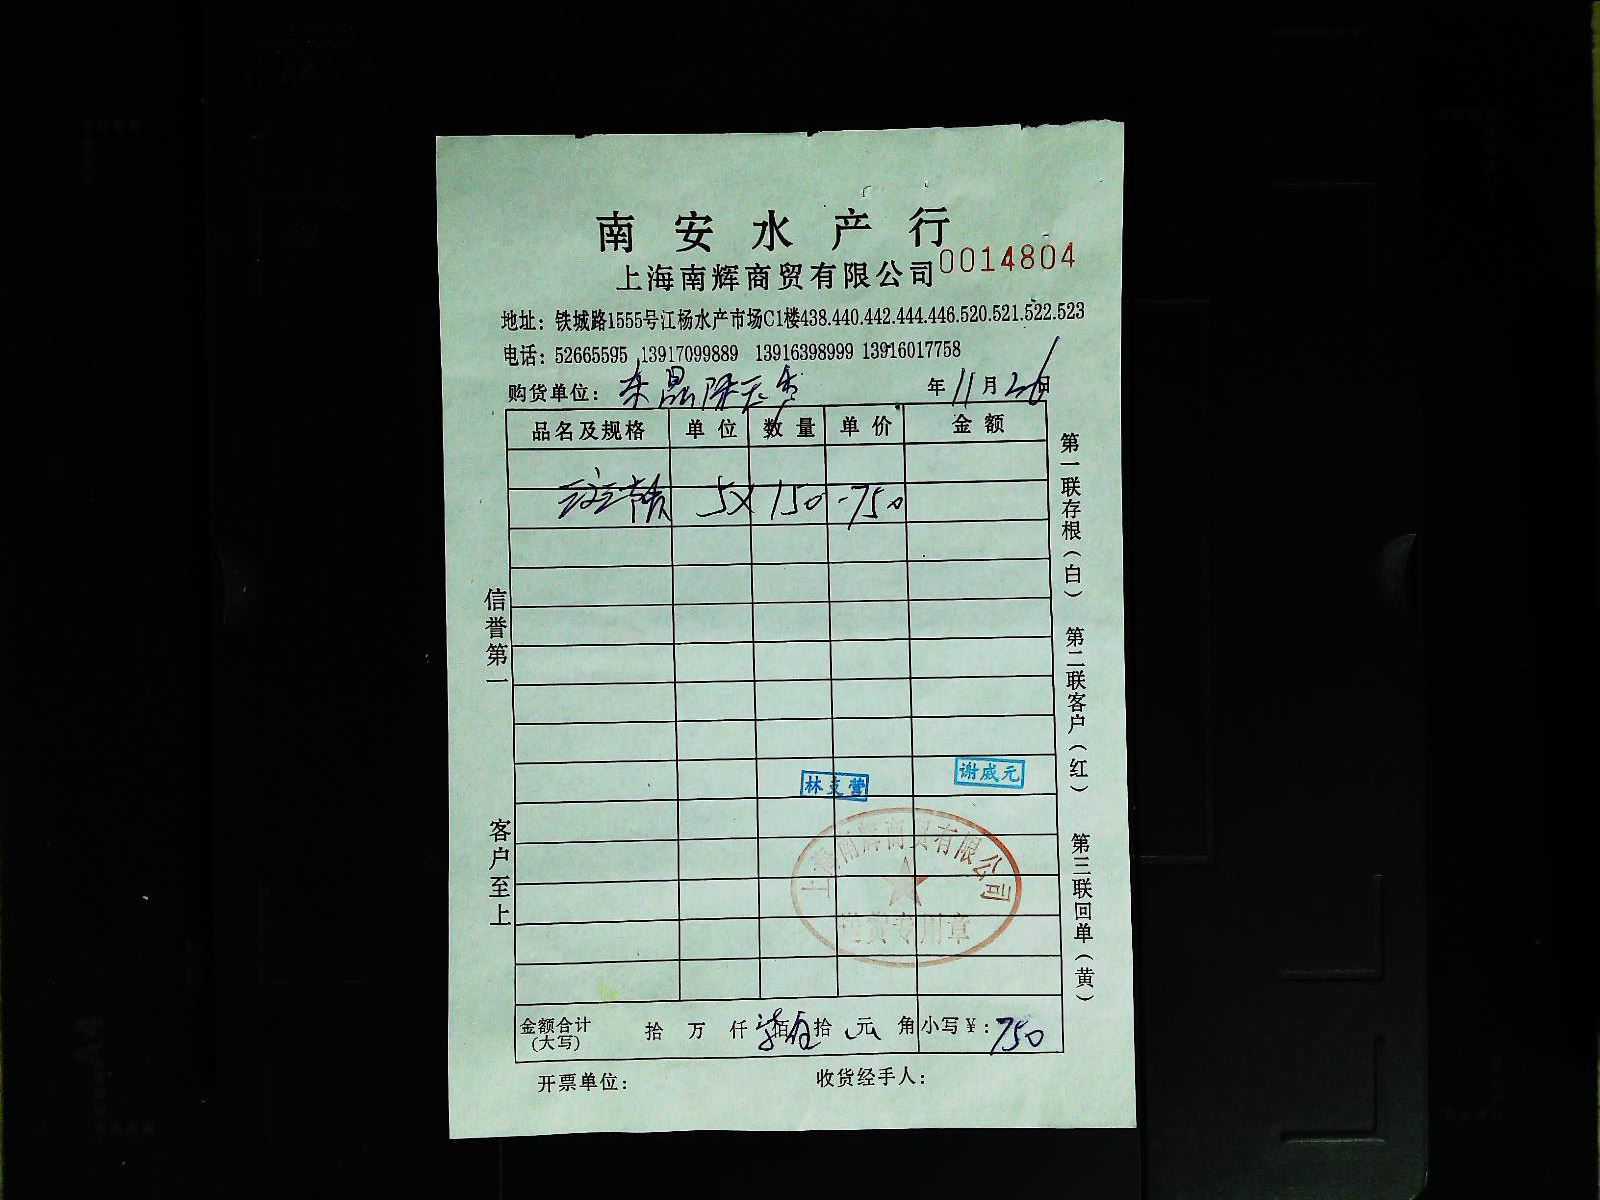 南安水产行
上海南辉商贸有限公司 0014804
地址：铁城路1555号江杨水产市场C1楼438.440.442.444.446.520.521.522.523
电话：52665595 13917099889 13916398999 13916017758
购货单位： 年 11 月 26 日
品名及规格 单位 数量 单价 金额
5X 150 - 750
信誉第一
客户至上
第一联存根（白）
第二联客户（红）
第三联回单（黄）
谢成元
上海南辉商贸有限公司
送货专用章
金额合计(大写) 拾 万 仟 柒 佰 伍 拾 元 角 小写￥：750
开票单位： 收货经手人：